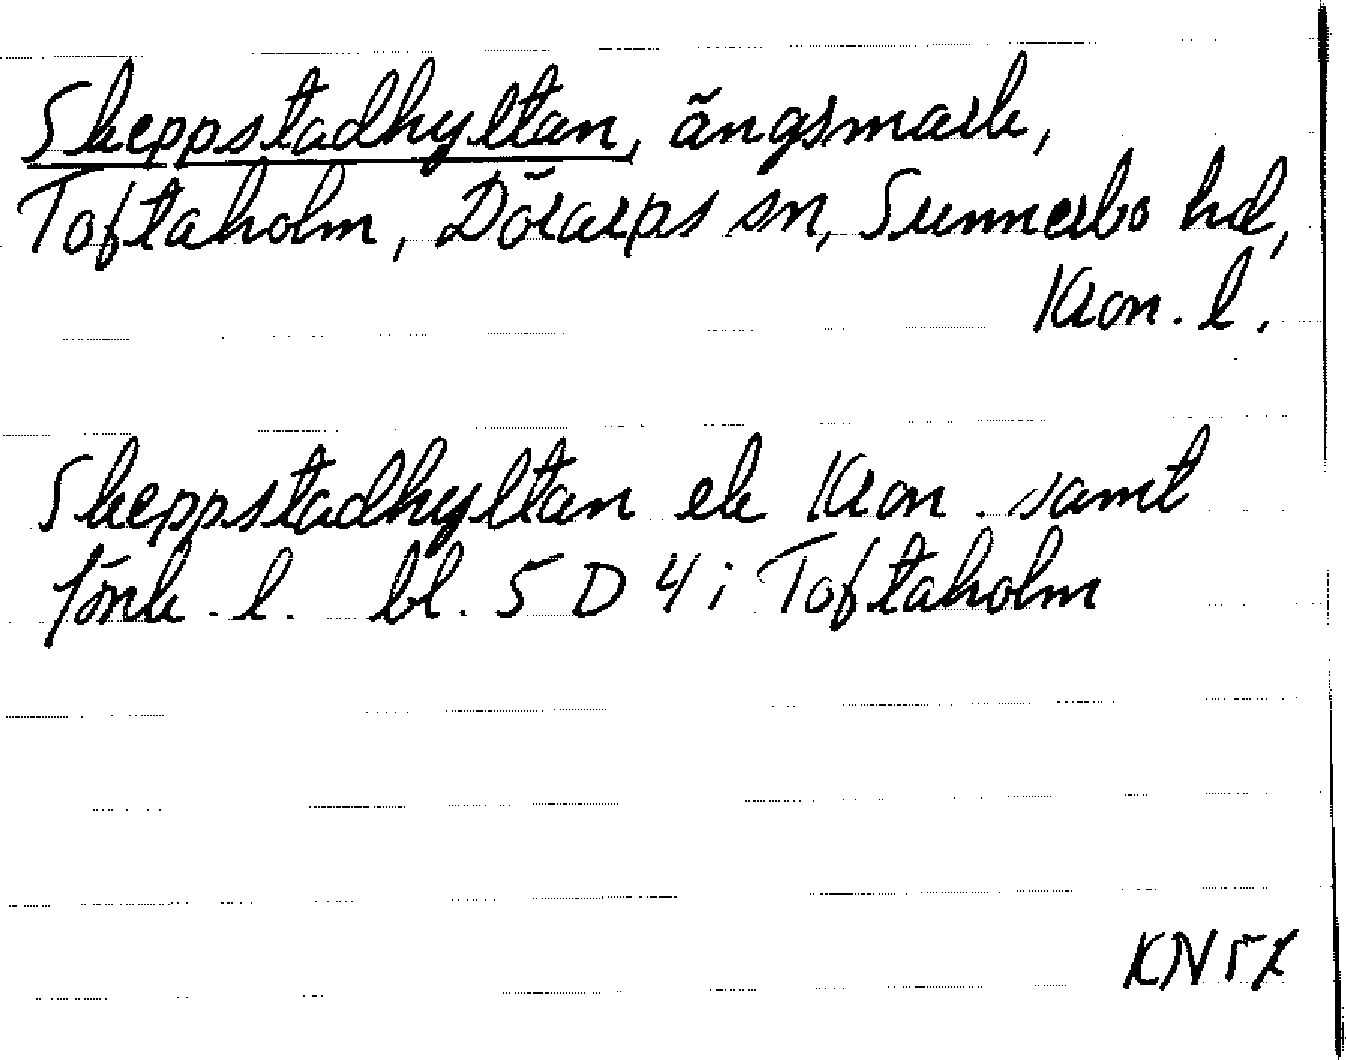 Skeppstadhyltan, ängsmark,
Toftaholm, Dörarps sn, Sunnerbo hd,
Kron. l.
Skeppstadhyltan ek Kron. samt
Jönk. l. bl. 5 D 4 i Toftaholm